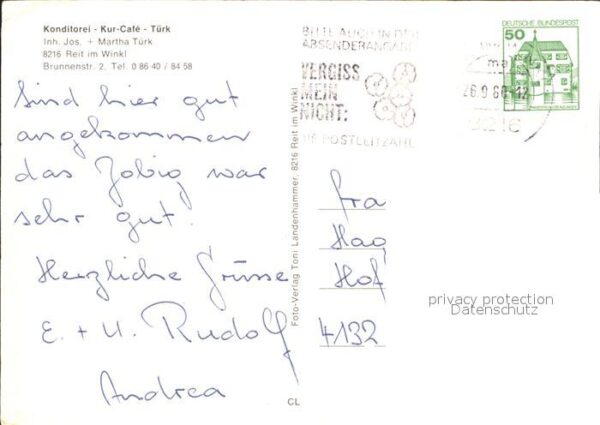 Konditorei - Kur-Café - Türk
Inh. Jos. + Martha Türk
8216 Reit im Winkl
Brunnenstr. 2, Tel. 0 86 40 / 84 58
Sind hier gut
angekommen
das Zobig war
sehr gut!
Herzliche Grüsse
E. + U. Rudolf
Andrea
CL
Foto-Verlag Toni Landenhammer, 8216 Reit im Winkl
BITTE AUCH IN DER
ABSENDERANGABE
VERGISS
MEIN
NICHT:
DIE POSTLEITZAHL
8216
DEUTSCHE BUNDESPOST
50
Fra
Hag
Hof
4132
privacy protection
Datenschutz